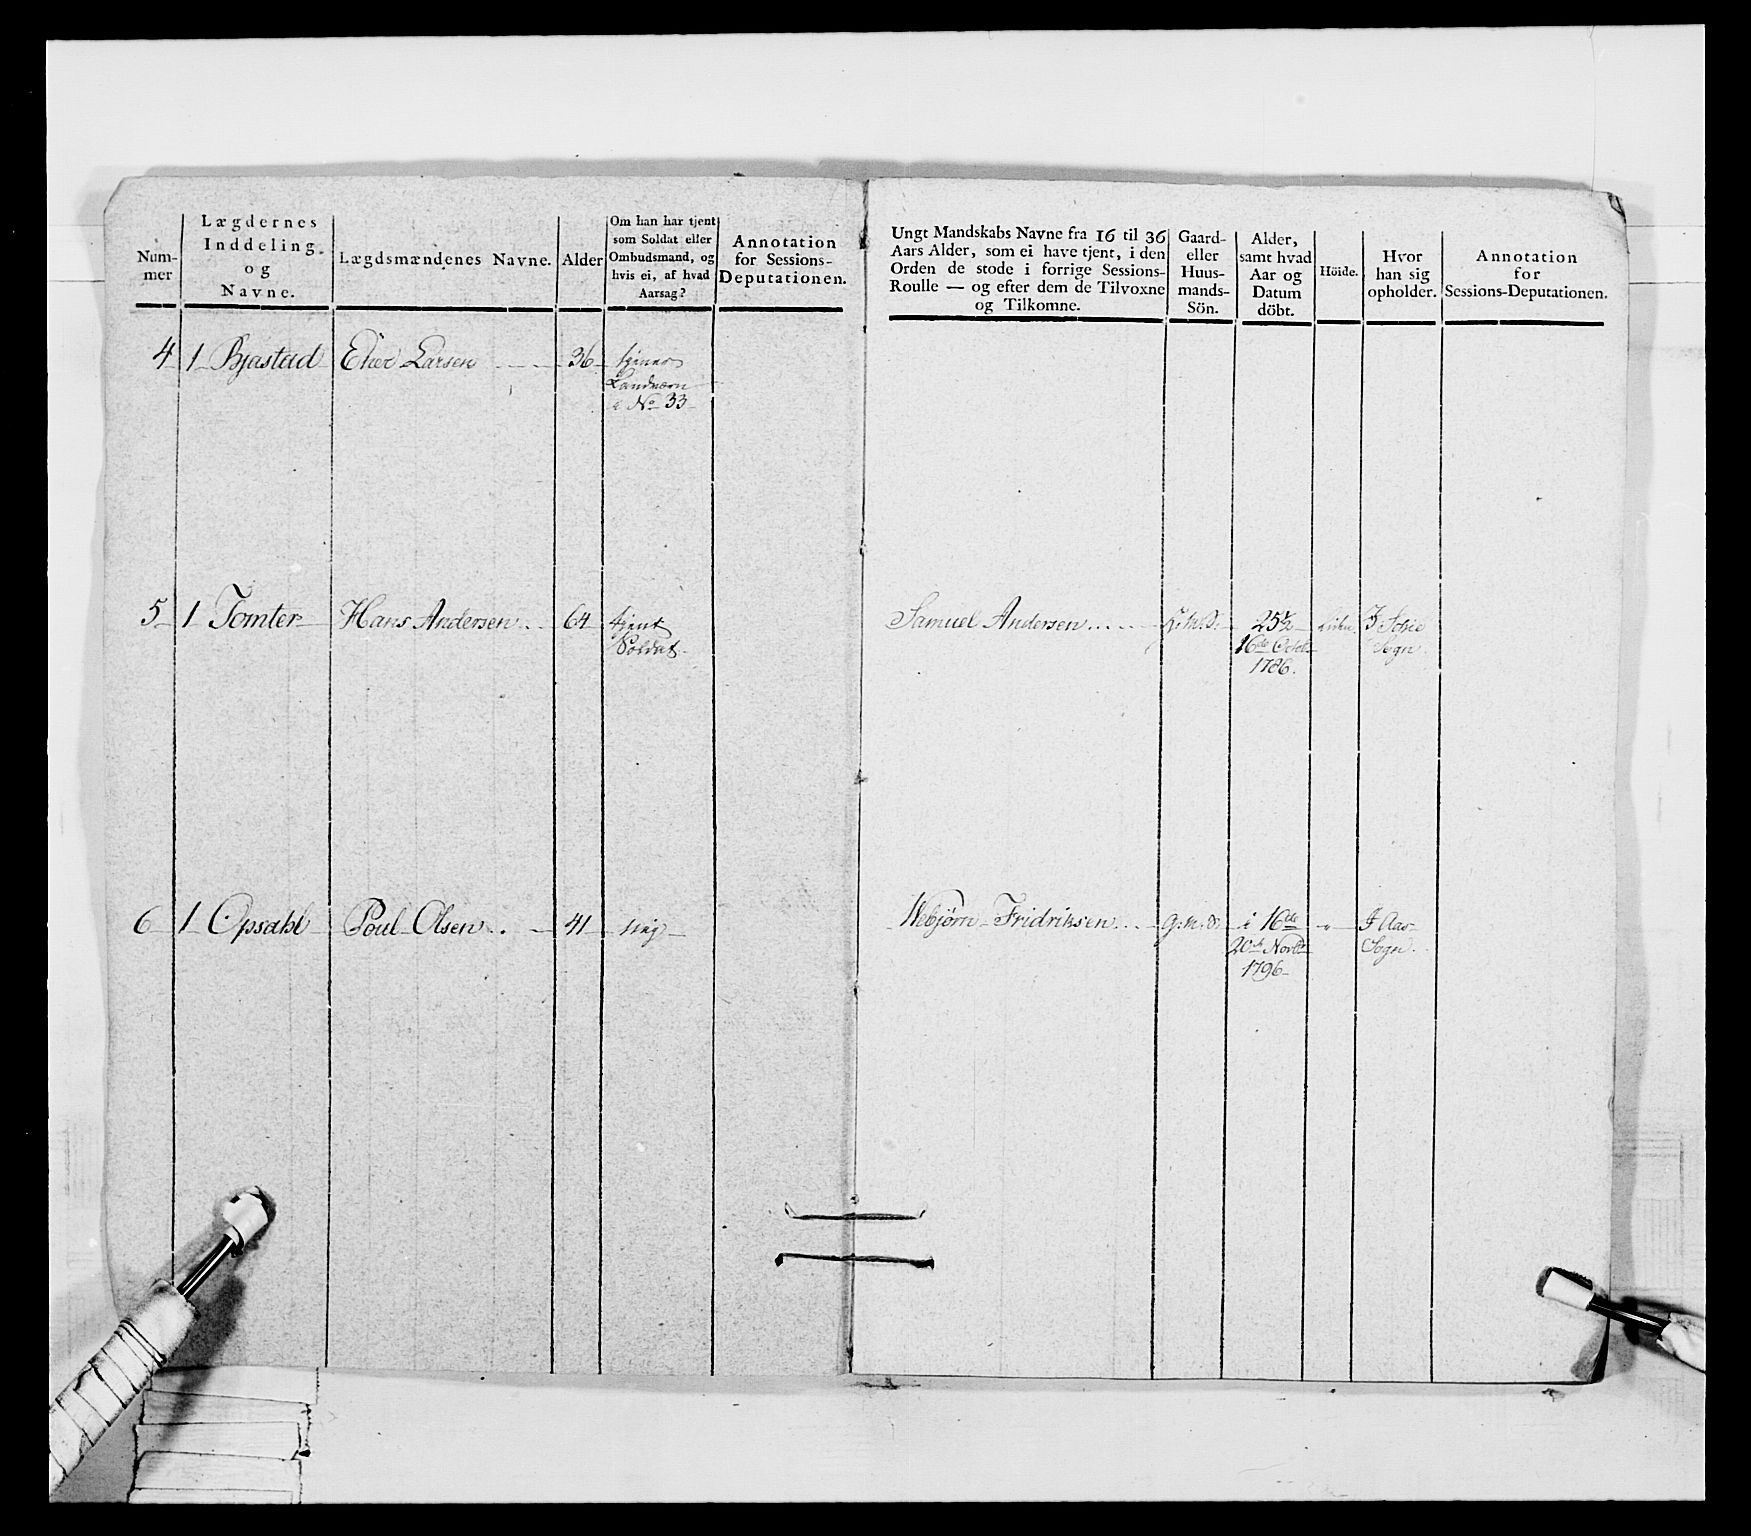 Num-
mer
Lægdernes
Inddeling
og
Navne.
Lægdsmændenes Navne.
Alder
Om han har tjent
som Soldat eller
Ombudsmand, og
hvis ei, af hvad
Aarsag?
Annotation
for Sessions-
Deputationen.
4 1 Bjastad Einer Larsen 36 tjener
Landværn
i No 33
5 1 Tomter Hans Andersen 64 tjent
Soldat
6 1 Opsahl Poul Olsen 41 nej
Ungt Mandskabs Navne fra 16 til 36
Aars Alder, som ei have tjent, i den
Orden de stode i forrige Sessions-
Roulle — og efter dem de Tilvoxne
og Tilkomne.
Gaard-
eller
Huus-
mands-
Sön.
Alder,
samt hvad
Aar og
Datum
döbt.
Höide.
Hvor
han sig
opholder.
Annotation
for
Sessions-Deputationen.
Samuel Andersen 25½ Liden
16de Octob
Sogn
1786
Fridriksen G. M. S. i 16de " I Aas
20de Novbr Sogn
1796